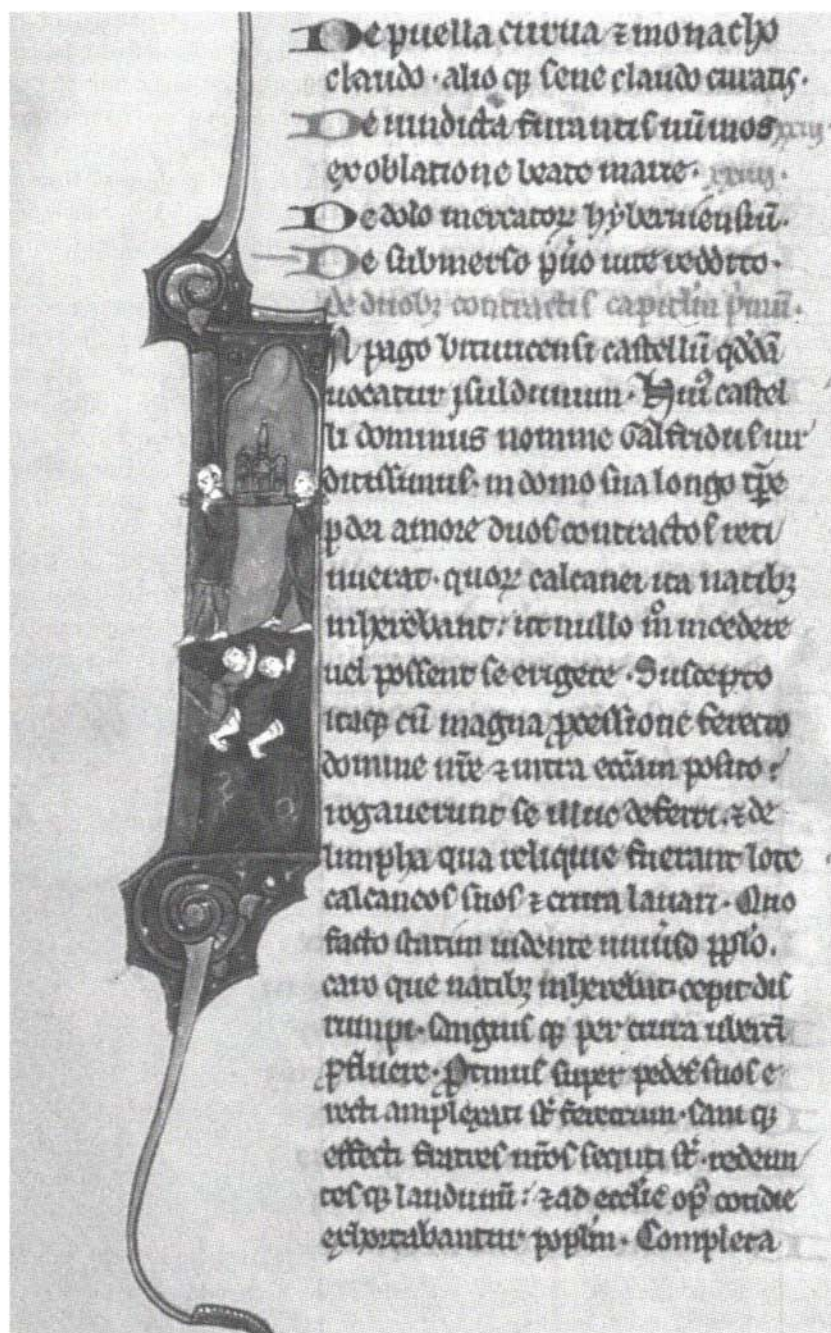 De puella curua ⁊ monacho
claudo · alio qꝫ sene claudo curatis·
De uindicta furantis nūmos xxiij·
ex oblatione beate marie· xxiiij·
De dolo mercatoꝝ hyberniensiū·
De submerso puo uite reddito·
de duobꝫ contractis capitlm pmū·
In pago bituricensi castellū qddā
uocatur ysuldunum· Huiꝰ castel
li dominus nomine Galfridus uir
ditissimus· in domo sua longo tpꝛe
p dei amore duos contractos reti
nuerat· quoꝝ calcanei ita natibꝫ
inherebant: ut nullo m̊ incedere
uel possent se erigere· Suscepto
itaqꝫ cū magna pcessione feretro
domine nr̄e ⁊ intra eccam posito:
rogauerunt se illuc deferri, ⁊ de
limpha qua reliquie fuerant lote
calcaneos suos ⁊ crura lauari· Quo
facto statim uidente uniuso pplo.
caro que natibꝫ inherebat· cepit dis
rumpi· sanguis qꝫ per crura ubertī
pfluere· Primus super pedes suos e
recti amplexati st feretrum· sani qꝫ
effecti fratres nros secuti st· redeun
tes qꝫ laudunū: ⁊ ad ecclie opꝰ cotidie
exhortabantur poplm· Completa